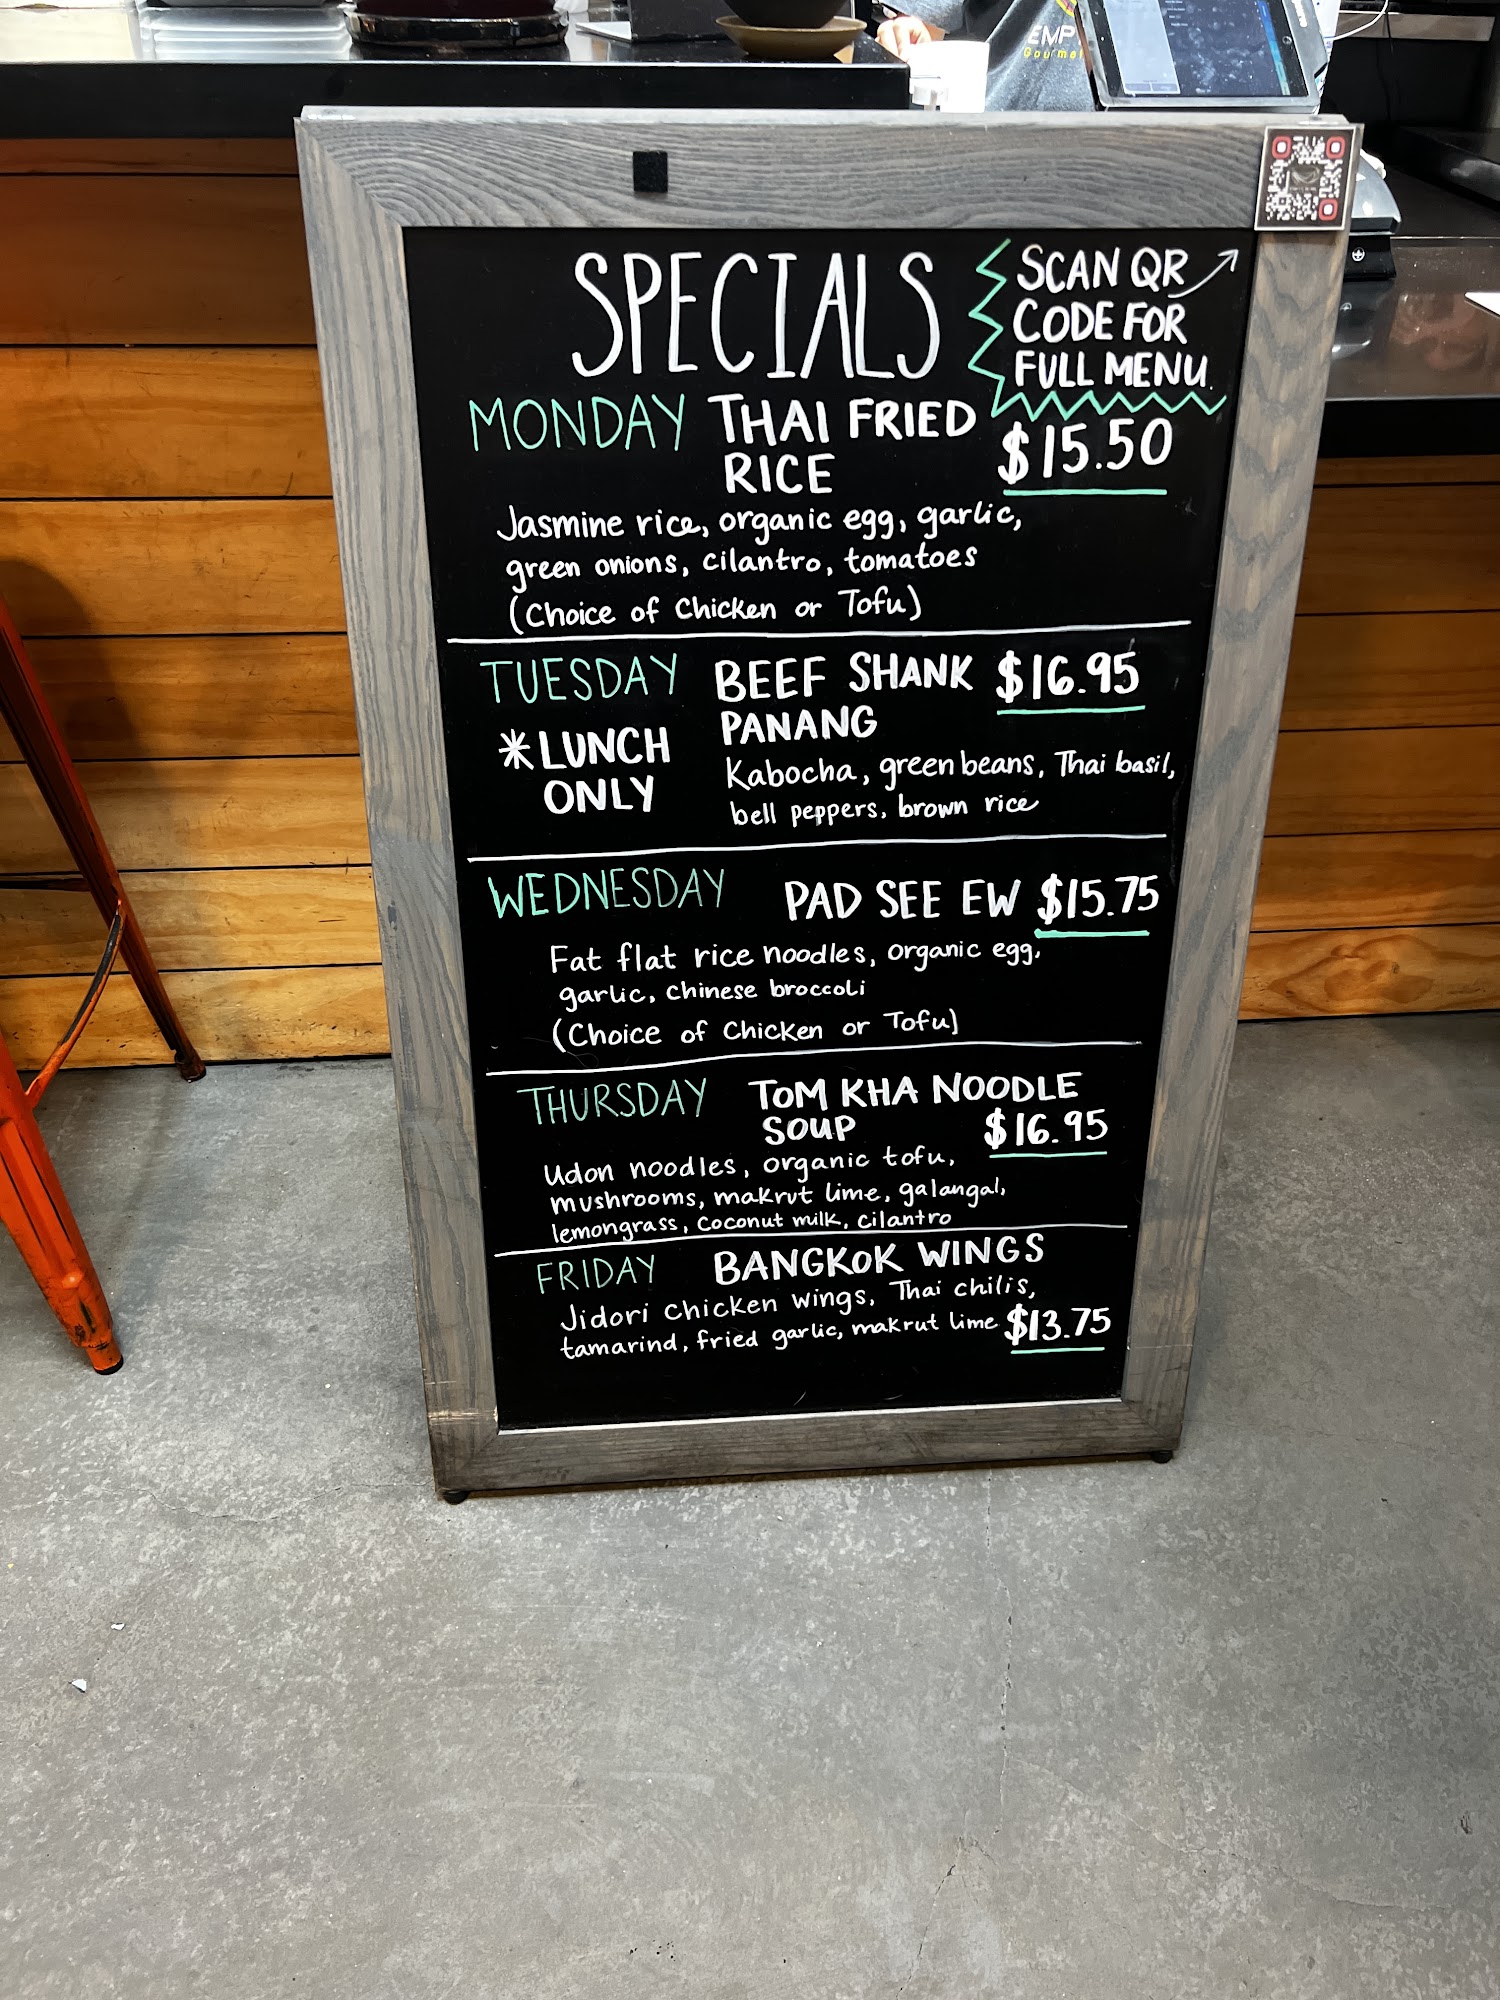 EMP
Gourmet
SPECIALS
SCAN QR
CODE FOR
FULL MENU.
MONDAY THAI FRIED
RICE
$15.50
Jasmine rice, organic egg, garlic,
green onions, cilantro, tomatoes
(Choice of Chicken or Tofu)
TUESDAY BEEF SHANK $16.95
PANANG
*LUNCH
ONLY
Kabocha, green beans, Thai basil,
bell peppers, brown rice
WEDNESDAY PAD SEE EW $15.75
Fat flat rice noodles, organic egg,
garlic, Chinese broccoli
(Choice of Chicken or Tofu)
THURSDAY TOM KHA NOODLE
SOUP $16.95
Udon noodles, organic tofu,
mushrooms, makrut lime, galangal,
lemongrass, coconut milk, cilantro
FRIDAY BANGKOK WINGS
Jidori chicken wings, Thai chilis,
tamarind, fried garlic, makrut lime $13.75